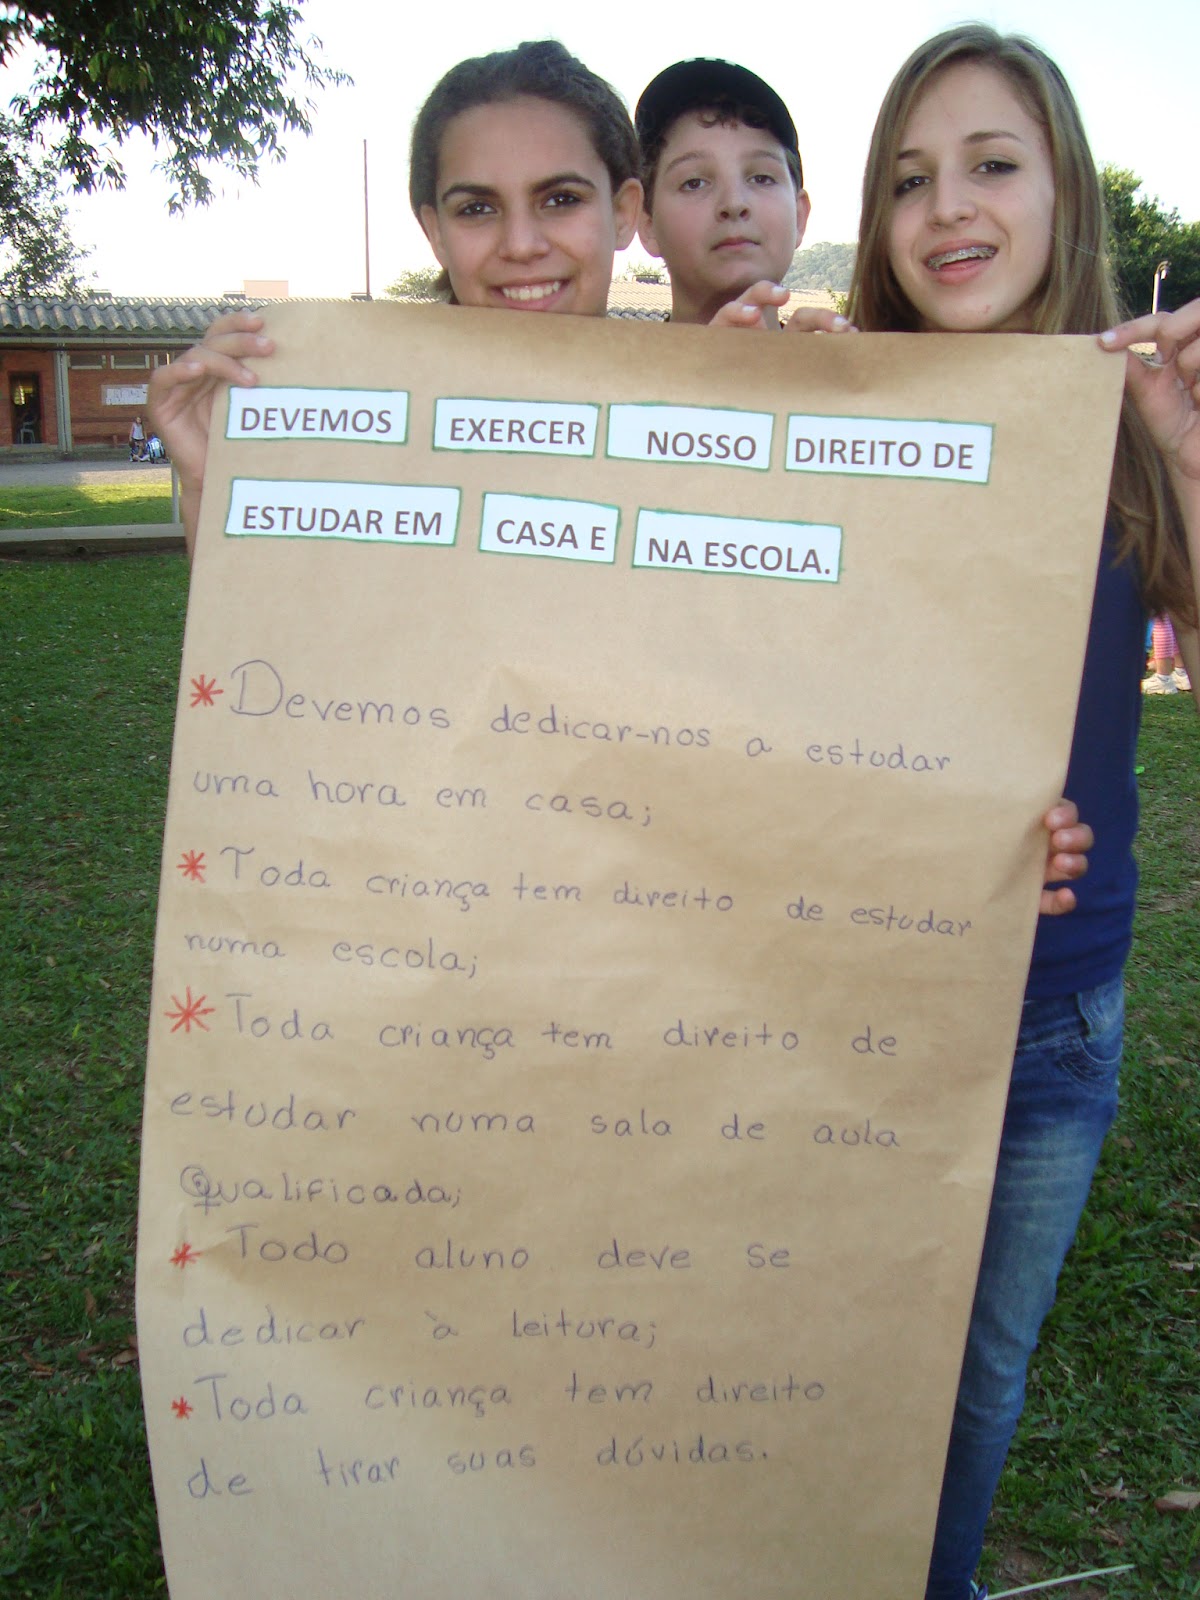 DEVEMOS EXERCER NOSSO DIREITO DE
ESTUDAR EM CASA E NA ESCOLA.
* Devemos dedicar-nos a estudar
uma hora em casa;
* Toda criança tem direito de estudar
numa escola;
* Toda criança tem direito de
estudar numa sala de aula
Qualificada;
* Todo aluno deve se
dedicar à leitura;
* Toda criança tem direito
de tirar suas dúvidas.